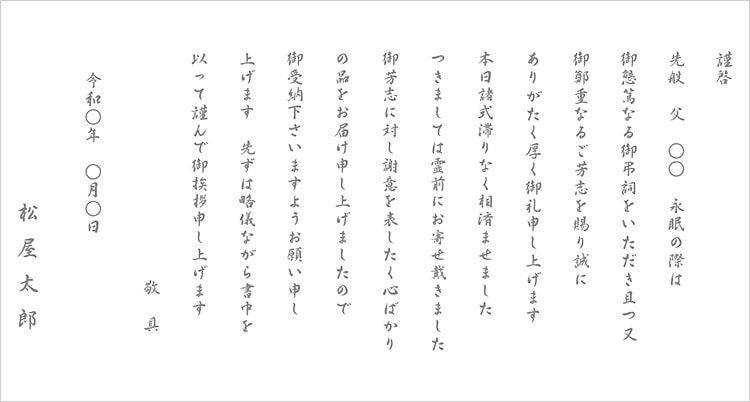 謹啓
先般　父　〇〇　永眠の際は
御懇篤なる御弔詞をいただき且つ又
御鄭重なるご芳志を賜り誠に
ありがたく厚く御礼申し上げます
本日諸式滞りなく相済ませました
つきましては霊前にお寄せ戴きました
御芳志に対し謝意を表したく心ばかり
の品をお届け申し上げましたので
御受納下さいますようお願い申し
上げます　先ずは略儀ながら書中を
以って謹んで御挨拶申し上げます
敬具
令和〇年　〇月〇日
松屋太郎